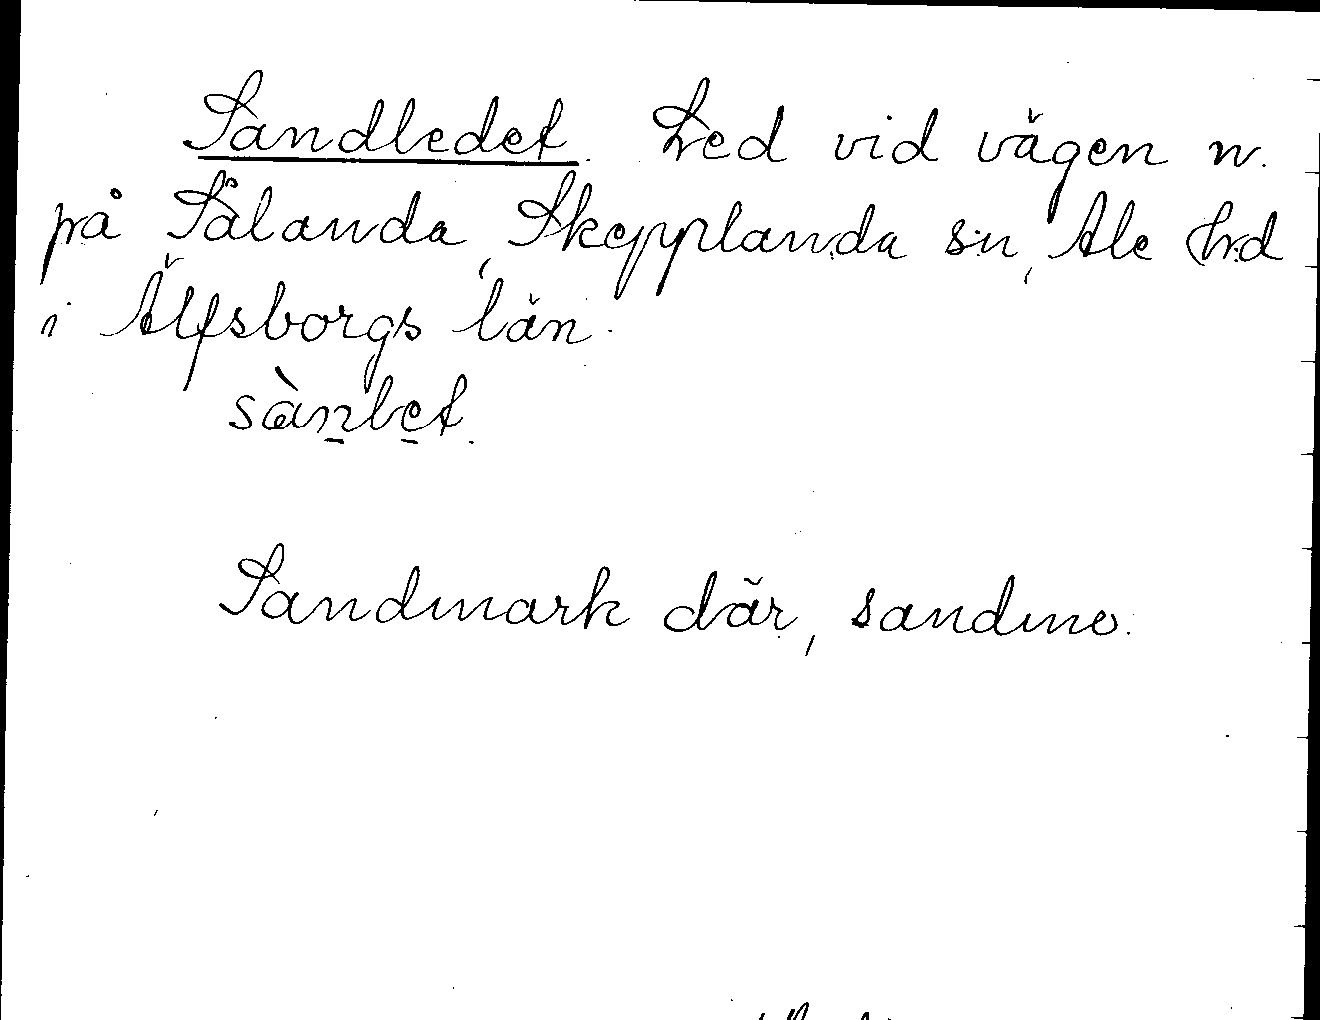 Sandledet. Led vid vägen n.
på Sålanda, Skepplanda sn, Ale hd
i Älfsborgs län.
sànlet.
Sandmark där, sandmo.